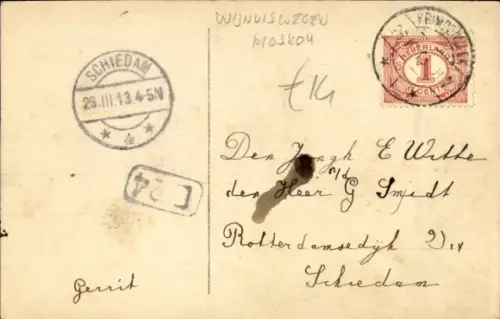 WIJNHUISWEZEN
MOSKOU
SCHIEDAM
29.III.13.4-5N
4
NEDERLAND
1
CENT
£14
E 24
Den Jongh E Witte
p/a
den Heer G Smidt
Rotterdamsedijk
Schiedam
Gerrit